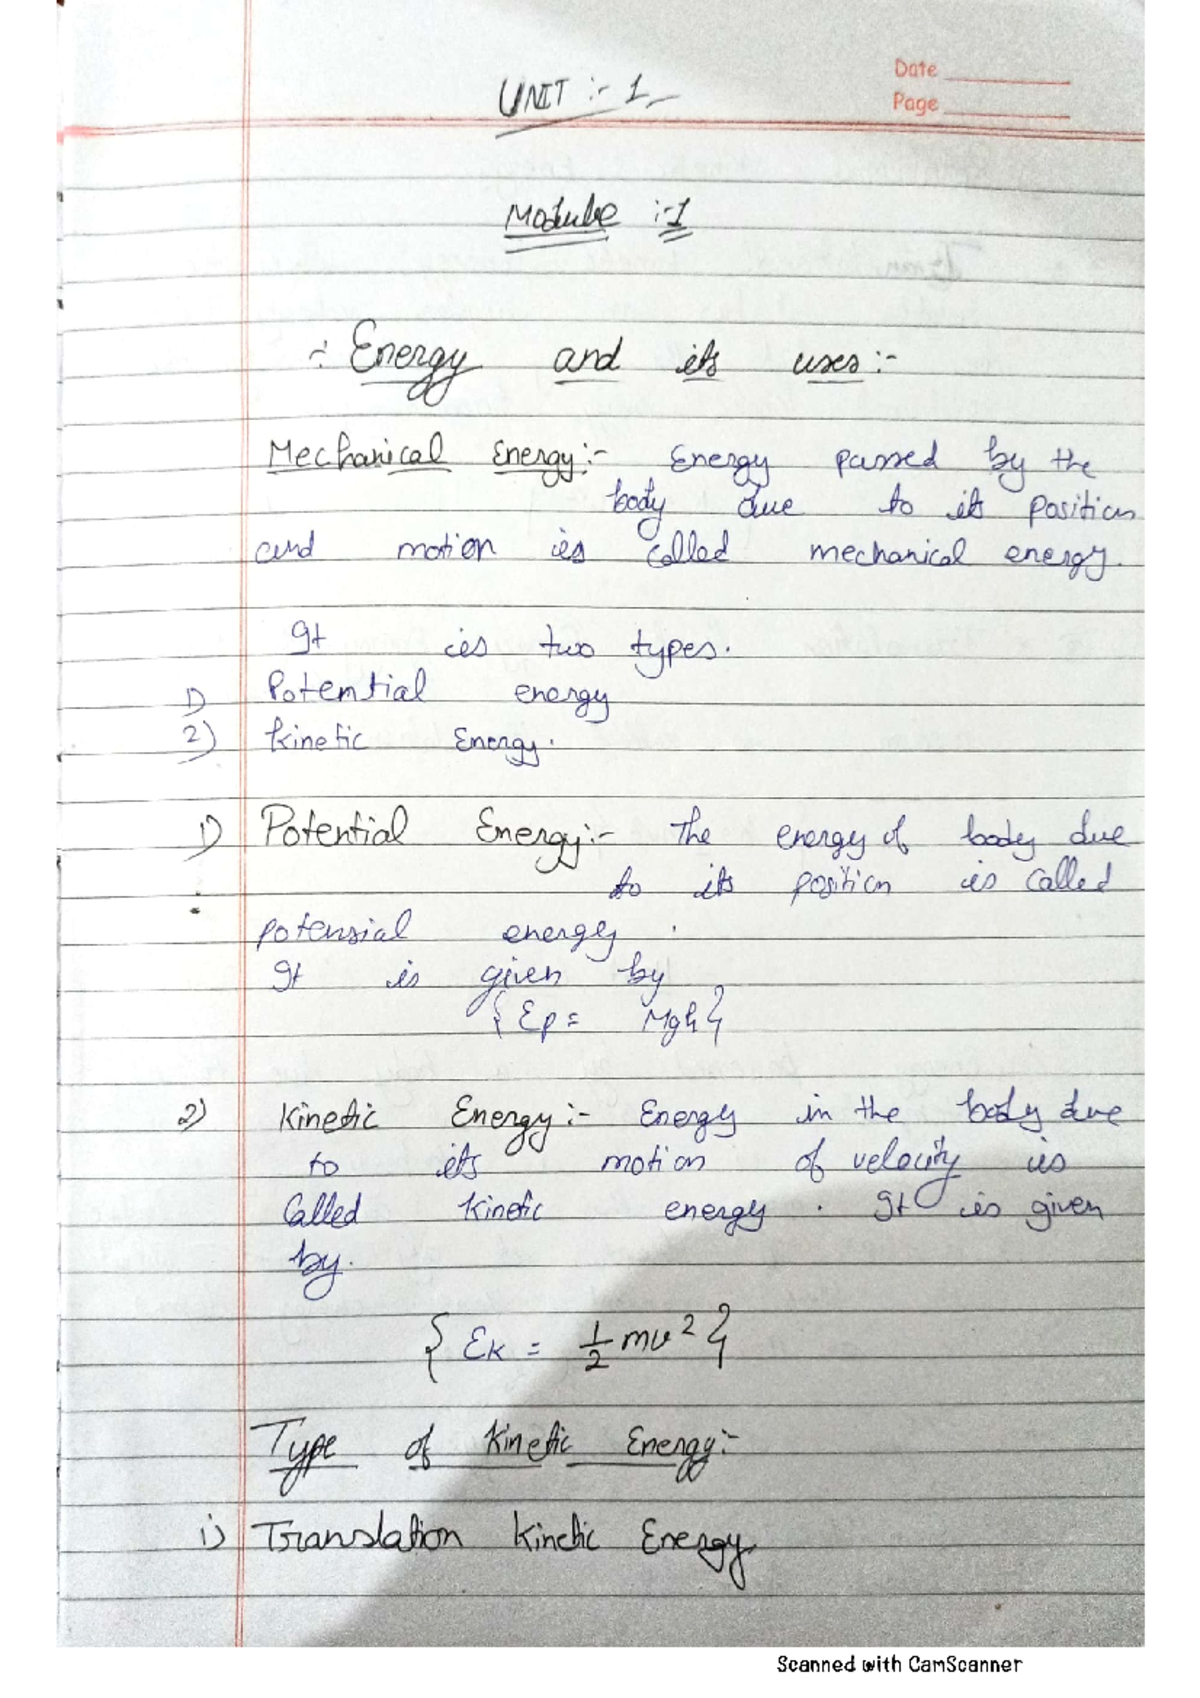 Date
Page
UNIT :- 1
Module :-1
:- Energy and its uses :-
Mechanical Energy:- Energy passed by the
body due to its position
and motion is called mechanical energy.
It is two types.
1) Potential energy
2) kinetic Energy.
1) Potential Energy:- The energy of body due
to its position is called
potensial energy.
It is given by
{Ep = Mgh}
2) Kinetic Energy:- Energy in the body due
to its motion of velocity is
Called kinetic energy. It is given
by.
{Ek = 1/2 mv²}
Type of Kinetic Energy:-
i) Translation Kinetic Energy
Scanned with CamScanner